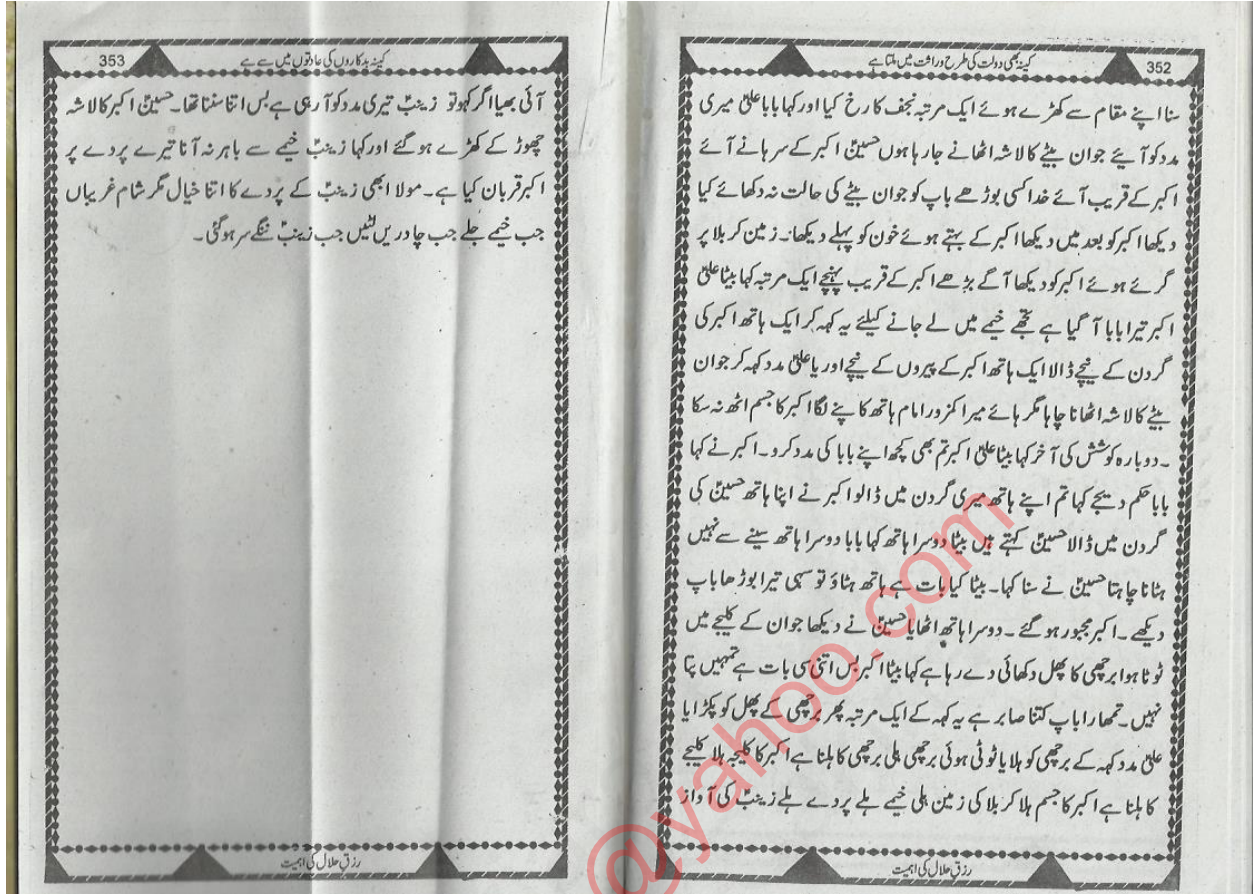 کینہ بھی دولت کی طرح وراثت میں ملتا ہے
352
سنا اپنے مقام سے کھڑے ہوئے ایک مرتبہ نجف کا رخ کیا اور کہا بابا علیؑ میری
مدد کو آیئے جوان بیٹے کا لاشہ اٹھانے جا رہا ہوں حسینؑ اکبر کے سرہانے آئے
اکبر کے قریب آئے خدا کسی بوڑھے باپ کو جوان بیٹے کی حالت نہ دکھائے کیا
دیکھا اکبر کو بعد میں دیکھا اکبر کے بہتے ہوئے خون کو پہلے دیکھا۔ زمین کربلا پر
گرے ہوئے اکبر کو دیکھا آگے بڑھے اکبر کے قریب پہنچے ایک مرتبہ کہا بیٹا علیؑ
اکبر تیرا بابا آ گیا ہے تجھے خیمے میں لے جانے کیلئے یہ کہہ کر ایک ہاتھ اکبر کی
گردن کے نیچے ڈالا ایک ہاتھ اکبر کے پیروں کے نیچے اور یا علیؑ مدد کہہ کر جوان
بیٹے کا لاشہ اٹھانا چاہا مگر ہائے میرا کمزور امام ہاتھ کانپنے لگا اکبر کا جسم اٹھ نہ سکا
۔ دوبارہ کوشش کی آخر کہا بیٹا علیؑ اکبر تم بھی کچھ اپنے بابا کی مدد کرو۔ اکبر نے کہا
بابا حکم دیجے کہا تم اپنے ہاتھ میری گردن میں ڈالو اکبر نے اپنا ہاتھ حسینؑ کی
گردن میں ڈالا حسینؑ کہتے ہیں بیٹا دوسرا ہاتھ کہا بابا دوسرا ہاتھ سینے سے نہیں
ہٹانا چاہتا حسینؑ نے سنا کہا۔ بیٹا کیا بات ہے ہاتھ ہٹاؤ تو سہی تیرا بوڑھا باپ
دیکھے۔ اکبر مجبور ہو گئے۔ دوسرا ہاتھ اٹھایا حسینؑ نے دیکھا جوان کے کلیجے میں
ٹوٹا ہوا برچھی کا پھل دکھائی دے رہا ہے کہا بیٹا اکبر بس اتنی سی بات ہے تمہیں پتا
نہیں۔ تمھارا باپ کتنا صابر ہے یہ کہہ کے ایک مرتبہ پھر برچھی کے پھل کو پکڑا یا
علیؑ مدد کہہ کے برچھی کو ہلایا ٹوٹی ہوئی برچھی ہلی برچھی کا ہلنا ہے اکبر کا کلیجہ ہلا کلیجے
کا ہلنا ہے اکبر کا جسم ہلا کربلا کی زمین ہلی خیمے ہلے پردے ہلے زینبؑ کی آواز
رزقِ حلال کی اہمیت
کینہ بدکاروں کی عادتوں میں سے ہے
353
آئی بھیا اگر کہو تو زینبؑ تیری مدد کو آ رہی ہے بس اتنا سننا تھا۔ حسینؑ اکبر کا لاشہ
چھوڑ کے کھڑے ہو گئے اور کہا زینبؑ خیمے سے باہر نہ آنا تیرے پردے پر
اکبر قربان کیا ہے۔ مولا ابھی زینبؑ کے پردے کا اتنا خیال مگر شام غریباں
جب خیمے جلے جب چادریں لٹیں جب زینبؑ ننگے سر ہو گئی۔
رزقِ حلال کی اہمیت
@yahoo.com